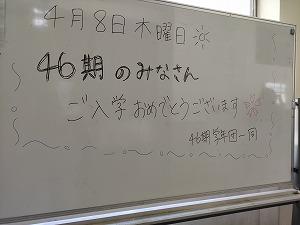 4月8日木曜日
46期のみなさん
ご入学おめでとうございます
46期学年団一同